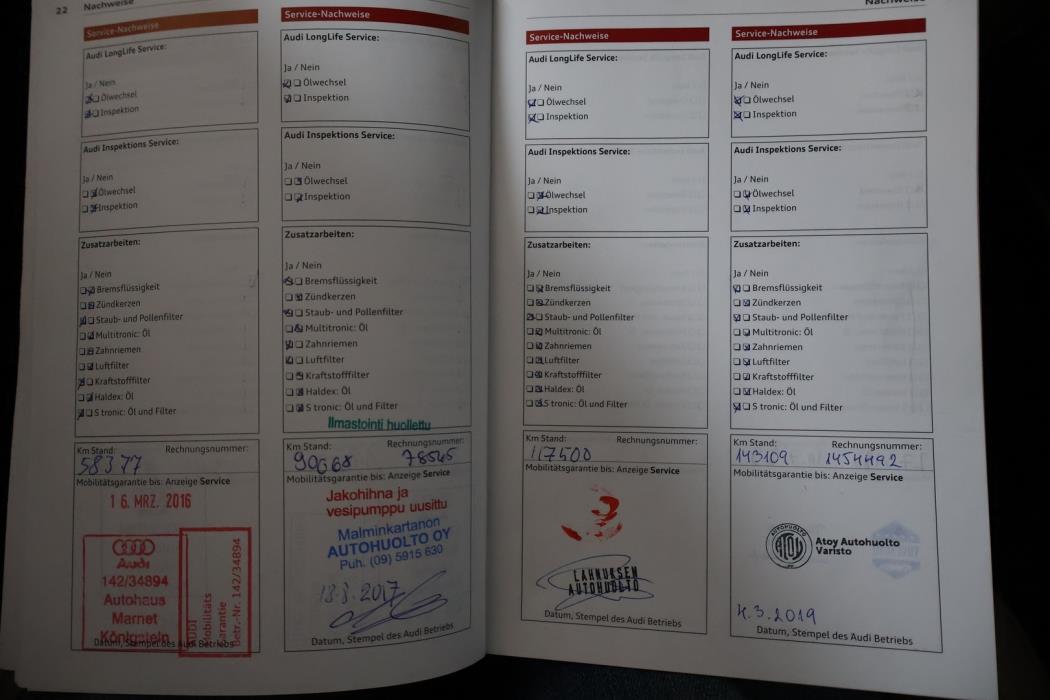 22
Nachweise
Service-Nachweise
Audi LongLife Service:
Ja / Nein
Ölwechsel
Inspektion
Audi Inspektions Service:
Ja / Nein
Ölwechsel
Inspektion
Zusatzarbeiten:
Ja / Nein
Bremsflüssigkeit
Zündkerzen
Staub- und Pollenfilter
Multitronic: Öl
Zahnriemen
Luftfilter
Kraftstofffilter
Haldex: Öl
S tronic: Öl und Filter
Km Stand: Rechnungsnummer:
58377
Mobilitätsgarantie bis: Anzeige Service
16. MRZ. 2016
Audi
142/34894
Autohaus
Marnet
Königstein
Audi
Mobilitäts
Garantie
Betr.-Nr. 142/34894
Datum, Stempel des Audi Betriebs
Service-Nachweise
Audi LongLife Service:
Ja / Nein
Ölwechsel
Inspektion
Audi Inspektions Service:
Ja / Nein
Ölwechsel
Inspektion
Zusatzarbeiten:
Ja / Nein
Bremsflüssigkeit
Zündkerzen
Staub- und Pollenfilter
Multitronic: Öl
Zahnriemen
Luftfilter
Kraftstofffilter
Haldex: Öl
S tronic: Öl und Filter
Ilmastointi huollettu
Km Stand: Rechnungsnummer:
90668 78545
Mobilitätsgarantie bis: Anzeige Service
Jakohihna ja
vesipumppu uusittu
Malminkartanon
AUTOHUOLTO OY
Puh. (09) 5915 630
Datum, Stempel des Audi Betriebs
Nachweise
Service-Nachweise
Audi LongLife Service:
Ja / Nein
Ölwechsel
Inspektion
Audi Inspektions Service:
Ja / Nein
Ölwechsel
Inspektion
Zusatzarbeiten:
Ja / Nein
Bremsflüssigkeit
Zündkerzen
Staub- und Pollenfilter
Multitronic: Öl
Zahnriemen
Luftfilter
Kraftstofffilter
Haldex: Öl
S tronic: Öl und Filter
Km Stand: Rechnungsnummer:
117500
Mobilitätsgarantie bis: Anzeige Service
LAHNUKSEN
AUTOHUOLTO
Datum, Stempel des Audi Betriebs
Service-Nachweise
Audi LongLife Service:
Ja / Nein
Ölwechsel
Inspektion
Audi Inspektions Service:
Ja / Nein
Ölwechsel
Inspektion
Zusatzarbeiten:
Ja / Nein
Bremsflüssigkeit
Zündkerzen
Staub- und Pollenfilter
Multitronic: Öl
Zahnriemen
Luftfilter
Kraftstofffilter
Haldex: Öl
S tronic: Öl und Filter
Km Stand: Rechnungsnummer:
143109 1454492
Mobilitätsgarantie bis: Anzeige Service
AUTOHUOLTO
ATOY
Atoy Autohuolto
Varisto
4.3.2019
Datum, Stempel des Audi Betriebs